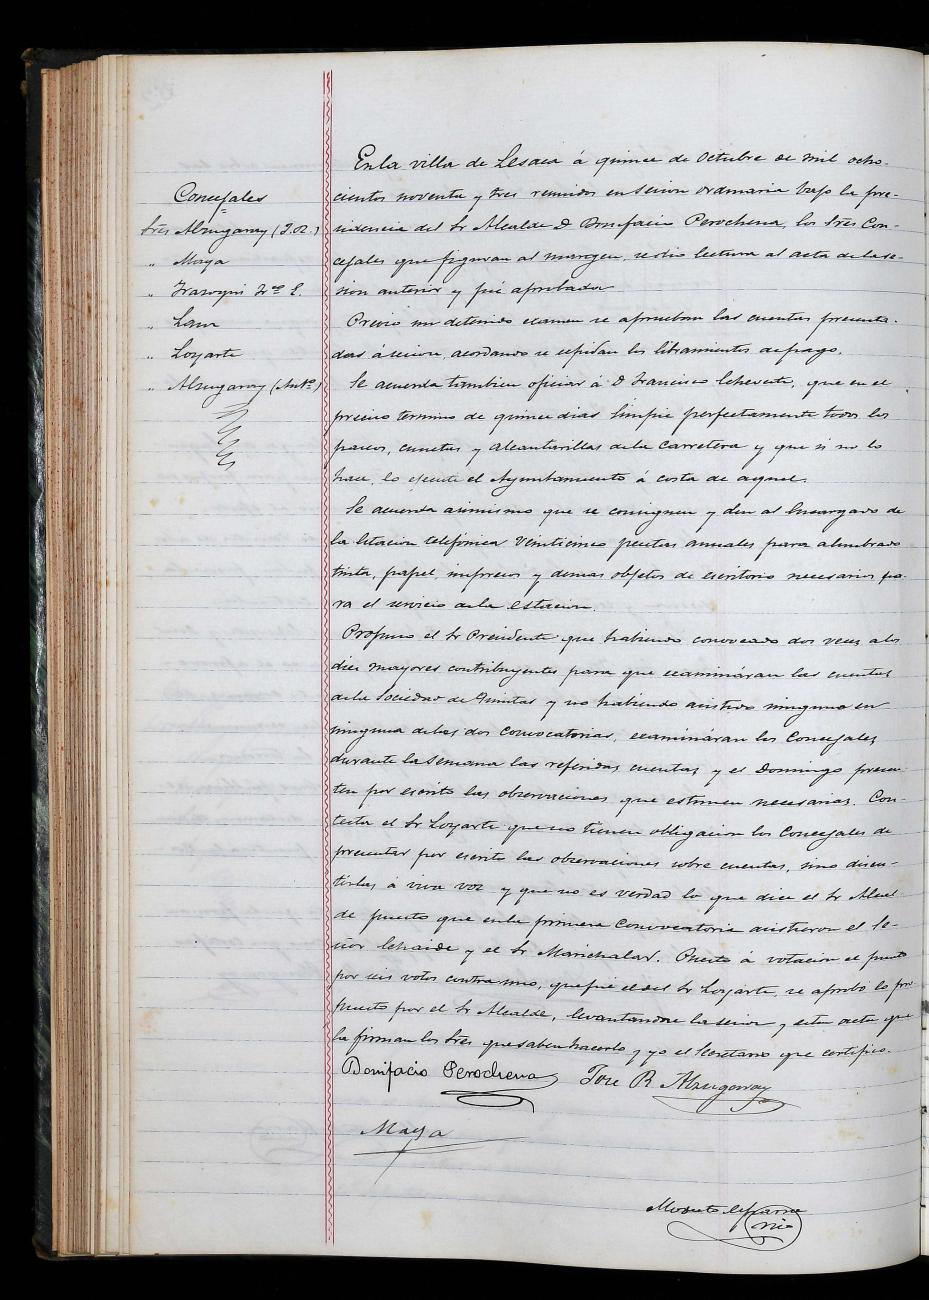 Concejales
Sres Alzugaray (J. R.)
" Maya
" Irazoqui Fco E.
" Lanz
" Loyarte
" Alzugaray (Anto)
En la villa de Lesaca á quince de Octubre de mil ocho-
cientos noventa y tres reunidos en sesion ordinaria bajo la pre-
sidencia del Sr Alcalde D Bonifacio Perochena, los Sres Con-
cejales que figuran al margen, se dio lectura al acta de la se-
sion anterior y fué aprobada
Previo un detenido examen se aprueban las cuentas presenta-
das á sesion, acordando se espidan los libramientos de pago.
Se acuerda tambien oficiar á D Francisco Echeverte, que en el
preciso termino de quince dias limpie perfectamente todos los
paseos, cunetas y alcantarillas de la Carretera y que si no lo
hace, lo ejecute el Ayuntamiento á costa de aquel.
Se acuerda asimismo que se consignen y den al Encargado de
la Estacion telefónica veinticinco pesetas anuales para alumbrado
tinta, papel, impresos y demas objetos de escritorio necesarios pa-
ra el servicio de la Estacion.
Propuso el Sr Presidente que habiendo convocado dos veces a los
diez mayores contribuyentes para que examináran las cuentas
de la Sociedad de Quintas y no habiendo asistido ninguno en
ninguna de las dos convocatorias, examináran los Concejales
durante la Semana las referidas cuentas y el Domingo presen-
ten por escrito las observaciones que estimen necesarias. Con-
testa el Sr Loyarte que no tienen obligacion los Concejales de
presentar por escrito las observaciones sobre cuentas, sino discu-
tirlas á viva voz y que no es verdad lo que dice el Sr Alcal
de puesto que en la primera Convocatoria asistieron el Se-
ñor Echaide y el Sr Marichalar. Puesto á votacion el punto
por seis votos contra uno, que fué el del Sr Loyarte, se aprobó lo pro
puesto por el Sr Alcalde, levantandose la sesion y esta acta que
la firman los Sres que saben hacerlo y yo el Secretario que certifico.
Bonifacio Perochena Jose R Alzugaray
Maya
Modesto